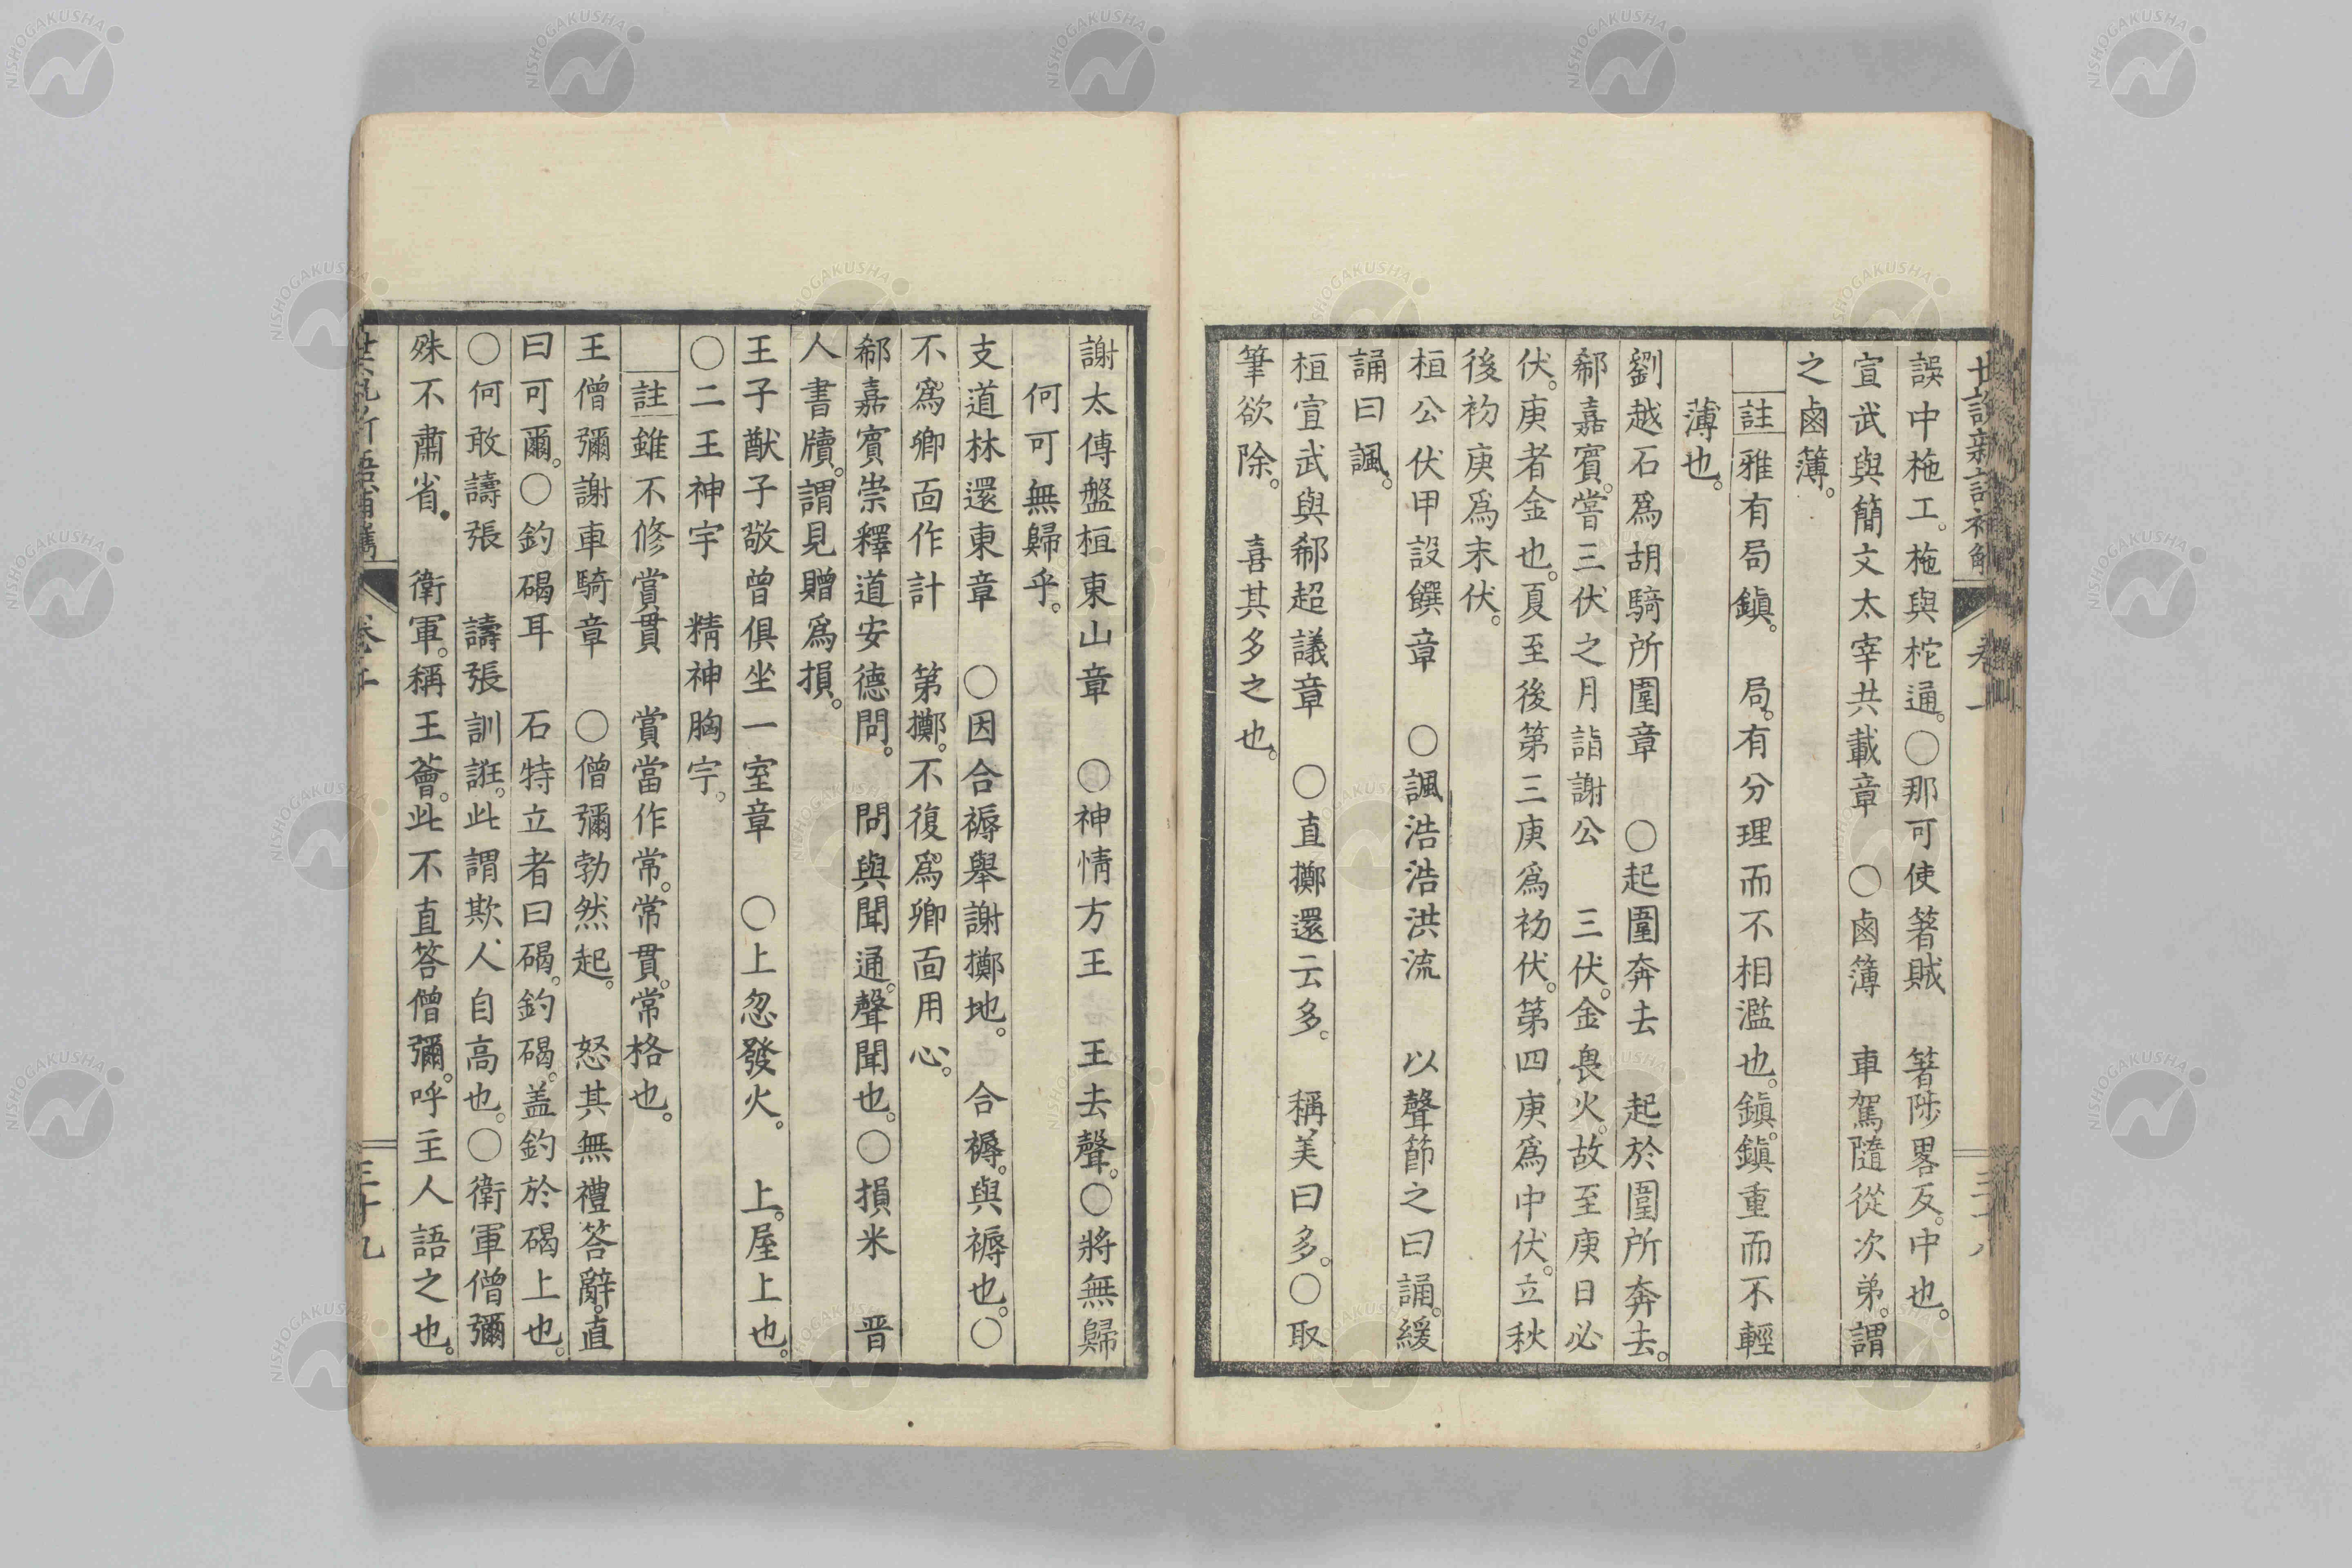 誤中柂工。柂與柁通。〇那可使著賊　著陟畧反。中也。
宣武與簡文太宰共載章　〇鹵簿　車駕隨從次弟。謂
之鹵簿。
註雅有局鎭。　局。有分理而不相濫也。鎭。鎭重而不輕
薄也。
劉越石爲胡騎所圍章　〇起圍奔去　起於圍所奔去。
郗嘉賓。嘗三伏之月詣謝公　三伏。金畏火。故至庚日必
伏。庚者金也。夏至後第三庚爲初伏。第四庚爲中伏。立秋
後初庚爲末伏。
桓公伏甲設饌章　〇諷浩浩洪流　以聲節之曰誦。緩
誦曰諷。
桓宣武與郗超議章　〇直擲還云多。　稱美曰多。〇取
筆欲除。　喜其多之也。
謝太傅盤桓東山章　〇神情方王　王去聲。〇將無歸
何可無歸乎。
支道林還東章　〇因合褥舉謝擲地。　合褥。與褥也。〇
不爲卿面作計　第擲。不復爲卿面用心。
郗嘉賓崇釋道安德問。　問與聞通。聲聞也。〇損米　晋
人書牘。謂見贈爲損。
王子猷子敬曾俱坐一室章　〇上忽發火。　上。屋上也。
〇二王神宇　精神胸宇。
註雖不修賞貫　賞當作常。常貫。常格也。
王僧彌謝車騎章　〇僧彌勃然起。　怒其無禮答辭。直
曰可爾。〇釣碣耳　石特立者曰碣。釣碣。盖釣於碣上也。
〇何敢譸張　譸張訓誑。此謂欺人自高也。〇衛軍僧彌
殊不肅省。　衛軍。稱王薈。此不直答僧彌。呼主人語之也。
三十九
NISHOGAKUSHA